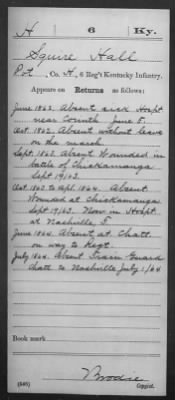 H 6 Ky.
Squire Hall
Pvt., Co. H, 6 Reg't Kentucky Infantry.
Appears on Returns as follows:
June 1862. Absent sick Hospt
near Corinth June 5.
Oct. 1862. Absent without leave
on the march.
Sept. 1863. Absent Wounded in
battle of Chickamauga
Sept 19/63.
Oct. 1863 to Apl. 1864. Absent.
Wounded at Chickamauga
Sept 19/63. Now in Hospt
at Nashville T
June 1864. Absent at Chatt
on way to Regt.
July 1864. Absent Train Guard
Chatt to Nashville July 1/64
Book mark
(546)
Brodie
Copyist.